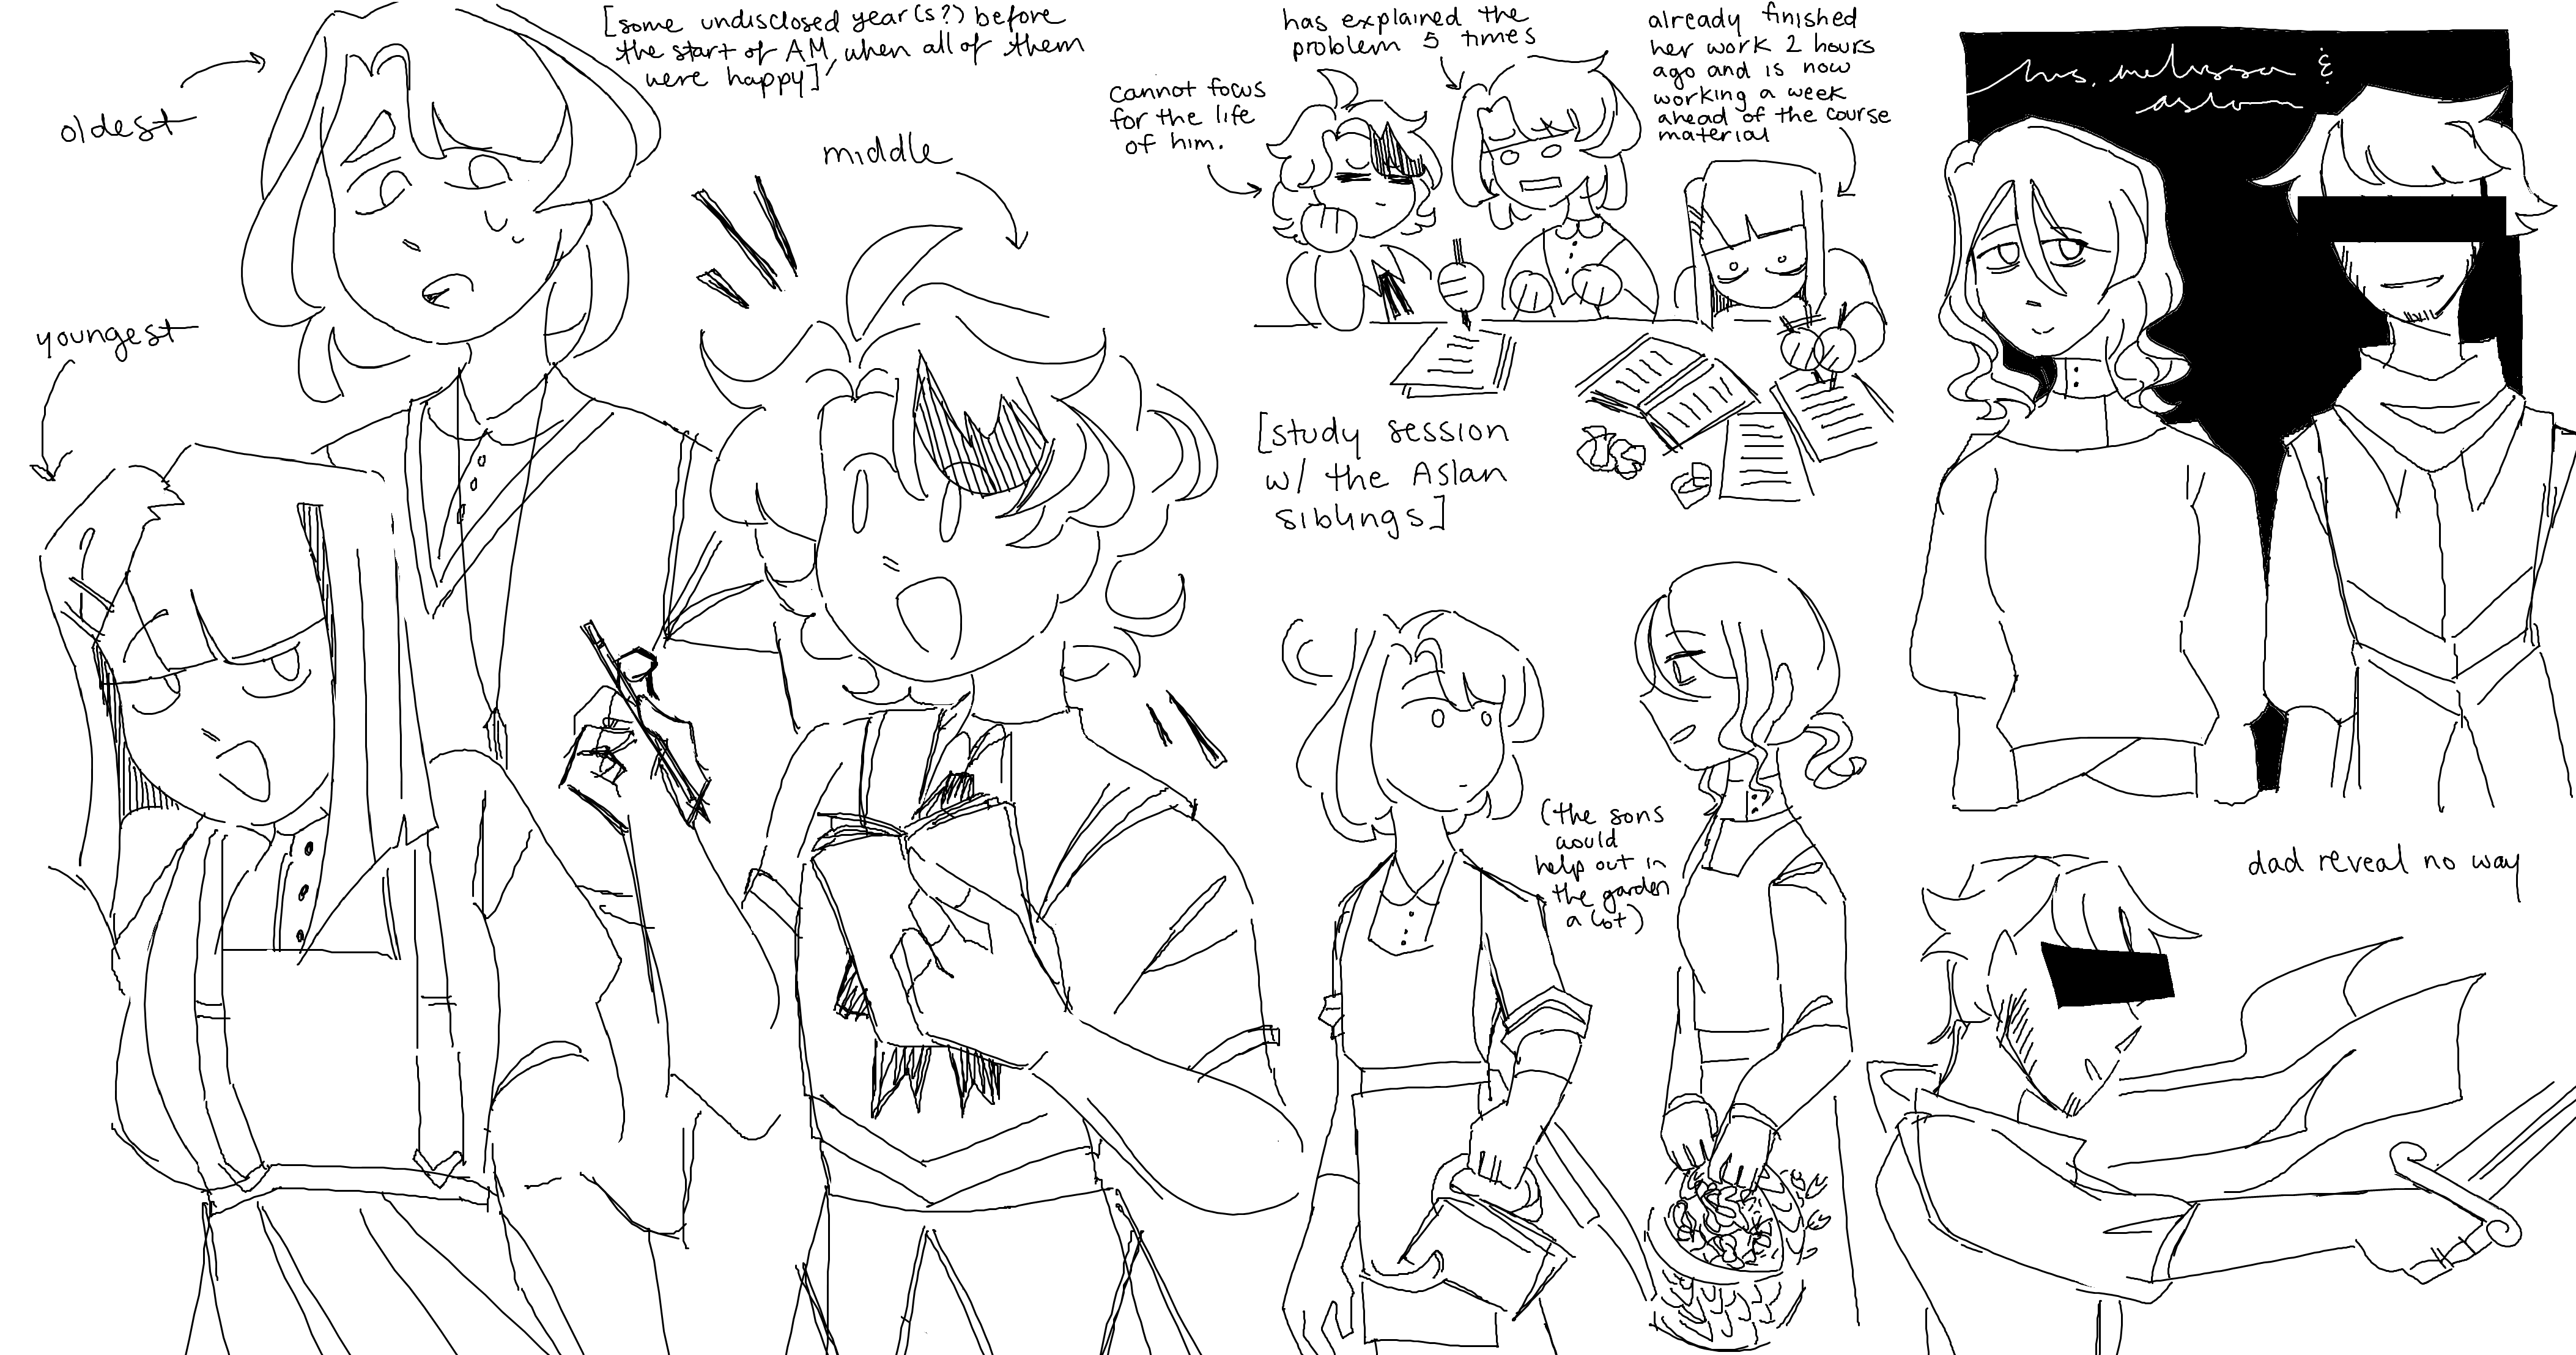 [some undisclosed year(s?) before
the start of AM, when all of them
were happy]
oldest
youngest
middle
cannot focus
for the life
of him.
has explained the
problem 5 times
already finished
her work 2 hours
ago and is now
working a week
ahead of the course
material
[study session
w/ the Aslan
siblings]
melissa &
aslan
(the sons
would
help out in
the garden
a lot)
dad reveal no way